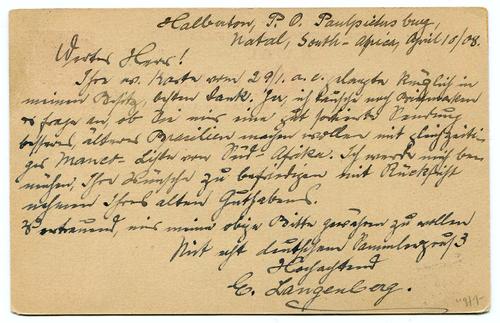 Halberton, P. O. Paulpietersburg,
Natal, South-Africa, April 10/08.
Wertes Herr!
Ihre w. Karte vom 29/1. a. c. gelangte kürzlich in
meinen Besitz, besten Dank. Ja, ich tausche noch Briefmarken
u. frage an, ob Sie mir eine gut sortierte Sendung
besseres, älteres Brasilien machen wollen mit gleichzeiti-
ger Manco-Liste von Süd-Afrika. Ich werde mich be-
mühen, Ihre Wünsche zu befriedigen mit Rücksicht
nehmen Ihres alten Guthabens.
Vertrauend, mir meine obige Bitte gewähren zu wollen
Mit echt deutschem Sammlergruß
Hochachtend
E. Langenberg.